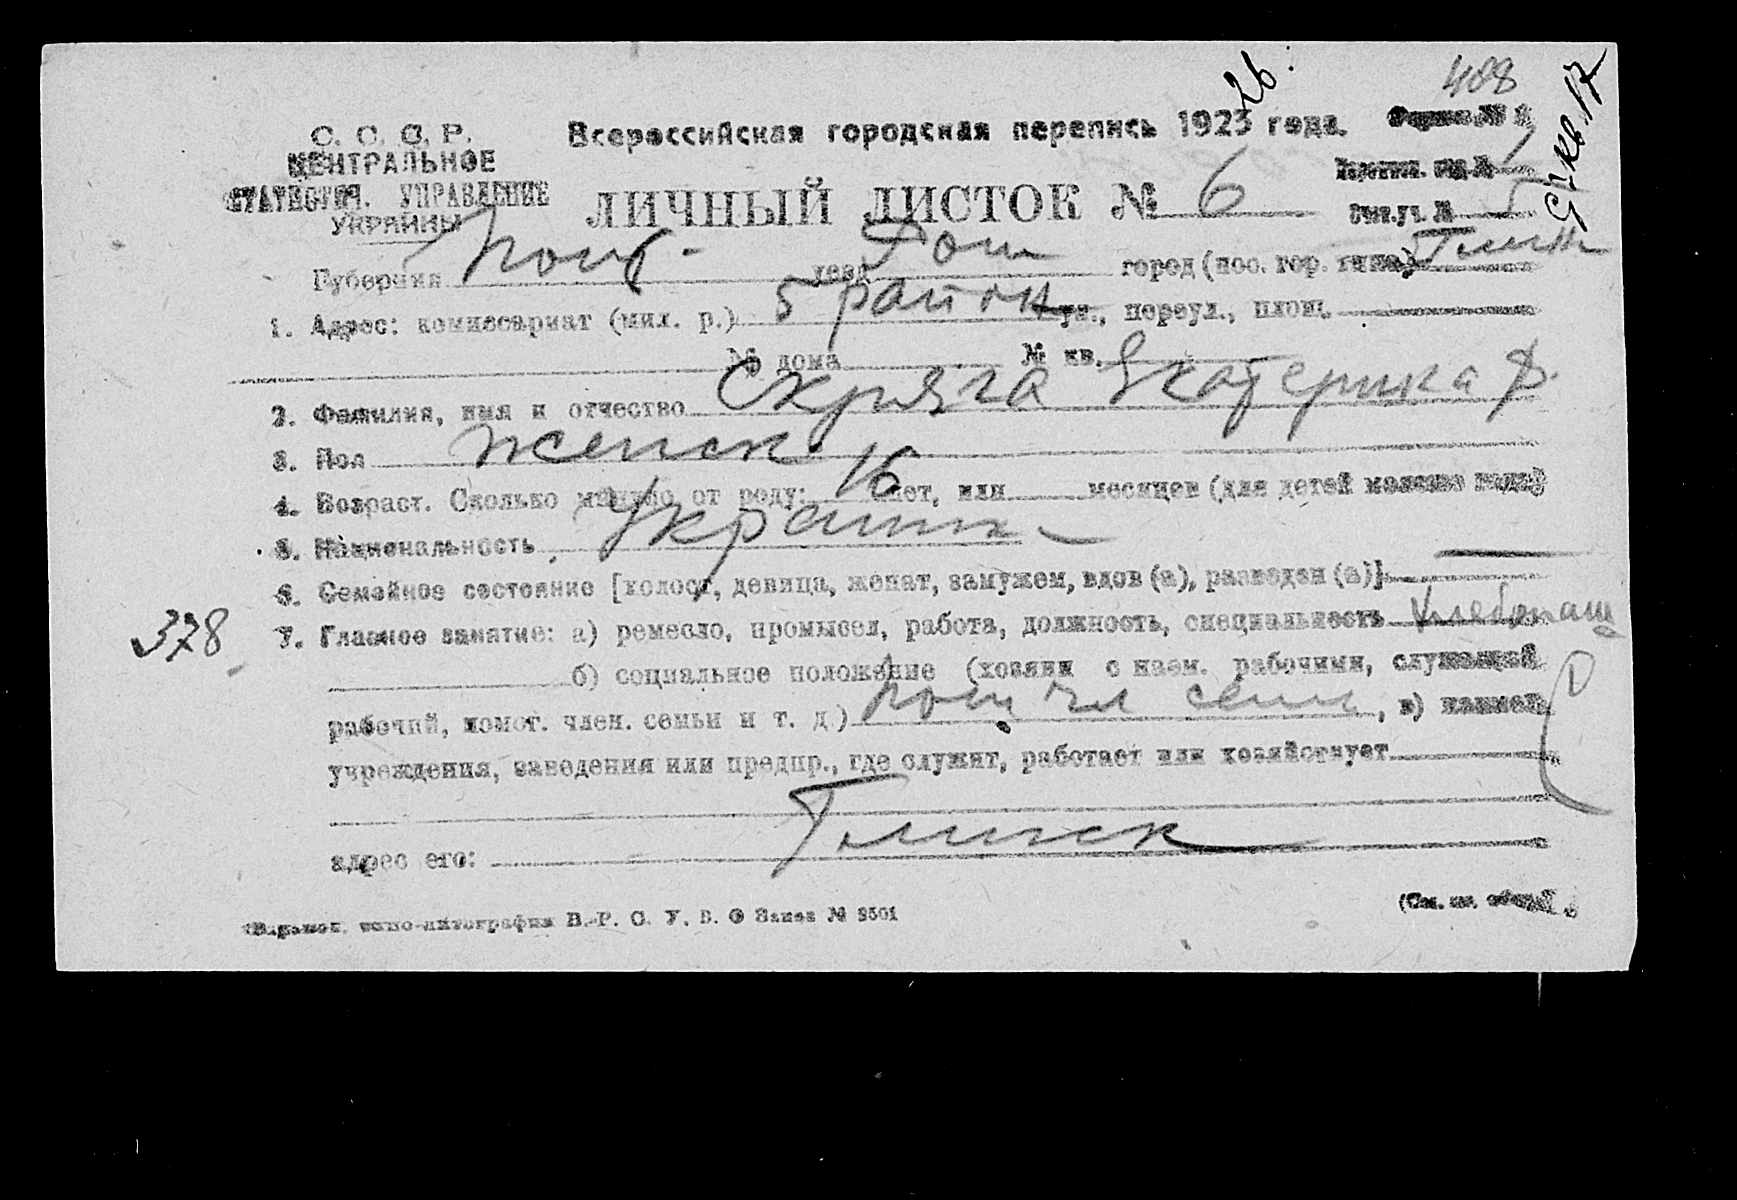 408
26
С. С. С. Р.
ЦЕНТРАЛЬНОЕ
СТАТИСТИЧ. УПРАВЛЕНИЕ
УКРАИНЫ
Всероссийская городская перепись 1923 года.
Форма № 1
ЛИЧНЫЙ ЛИСТОК № 6
Губерния Полт. уезд Ром город (пос. гор. типа) Глинск
1. Адрес: комиссариат (мил. р.) 5 район ул., переул., площ.
№ дома № кв.
2. Фамилия, имя и отчество Скряга Екатерина Ф.
3. Пол женск
4. Возраст. Сколько минуло от роду: 16 лет, или месяцев (для детей моложе года)
5. Национальность Украин
6. Семейное состояние [холост, девица, женат, замужем, вдов (а), разведен (а)] —
378
7. Главное занятие: а) ремесло, промысел, работа, должность, специальность хлебопаш
б) социальное положение (хозяин с наем. рабочими, служащий
рабочий, помог. член. семьи и т. д.) пом чл семи, в) наимен.
учреждения, заведения или предпр., где служит, работает или хозяйствует
адрес его: Глинск
В.-Р. С. У. В. О Заказ № 9501
(См. на обор.)